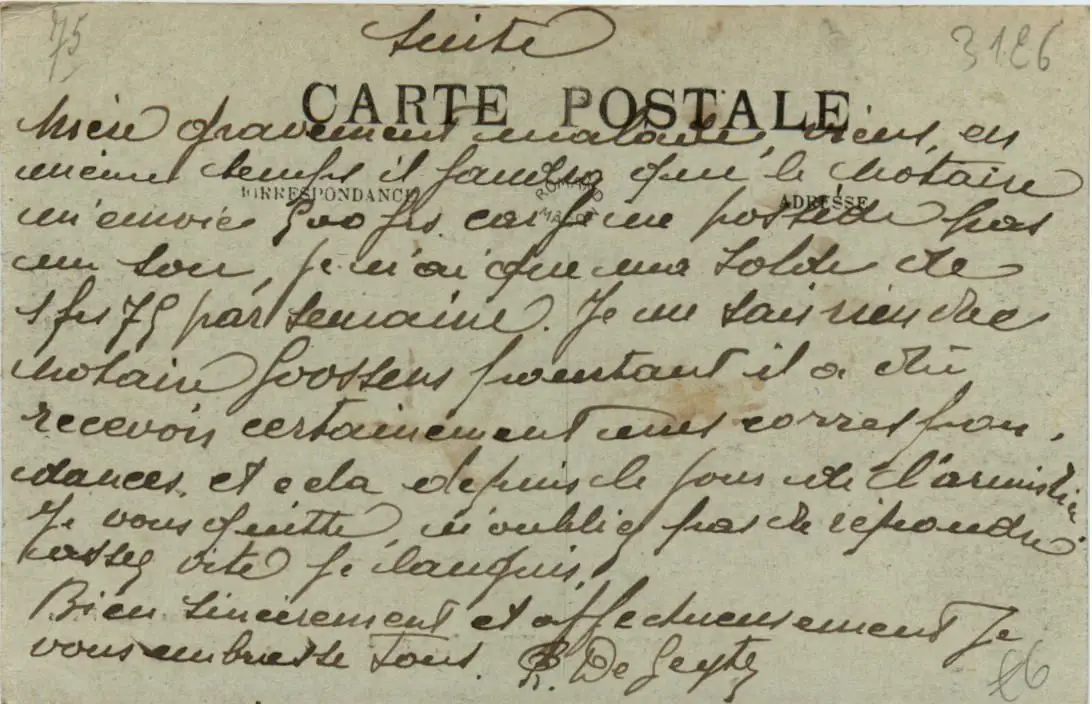 75
suite
3126
CARTE POSTALE
Mère gravement malade, viens, en
même temps il faudra que le notaire
CORRESPONDANCE
ADRESSE
m'envoie 500 frs car je ne possède pas
un sou, je n'ai que ma solde de
1 frs 75 par semaine. Je ne sais rien du
notaire Goossens pourtant il a dû
recevoir certainement mes correspon.
dances, et cela depuis le jour de l'armistice
Je vous quitte, n'oubliez pas de répondre
assez vite je languis.
Bien sincèrement et affectueusement Je
vous embrasse tous. De Geyter
26